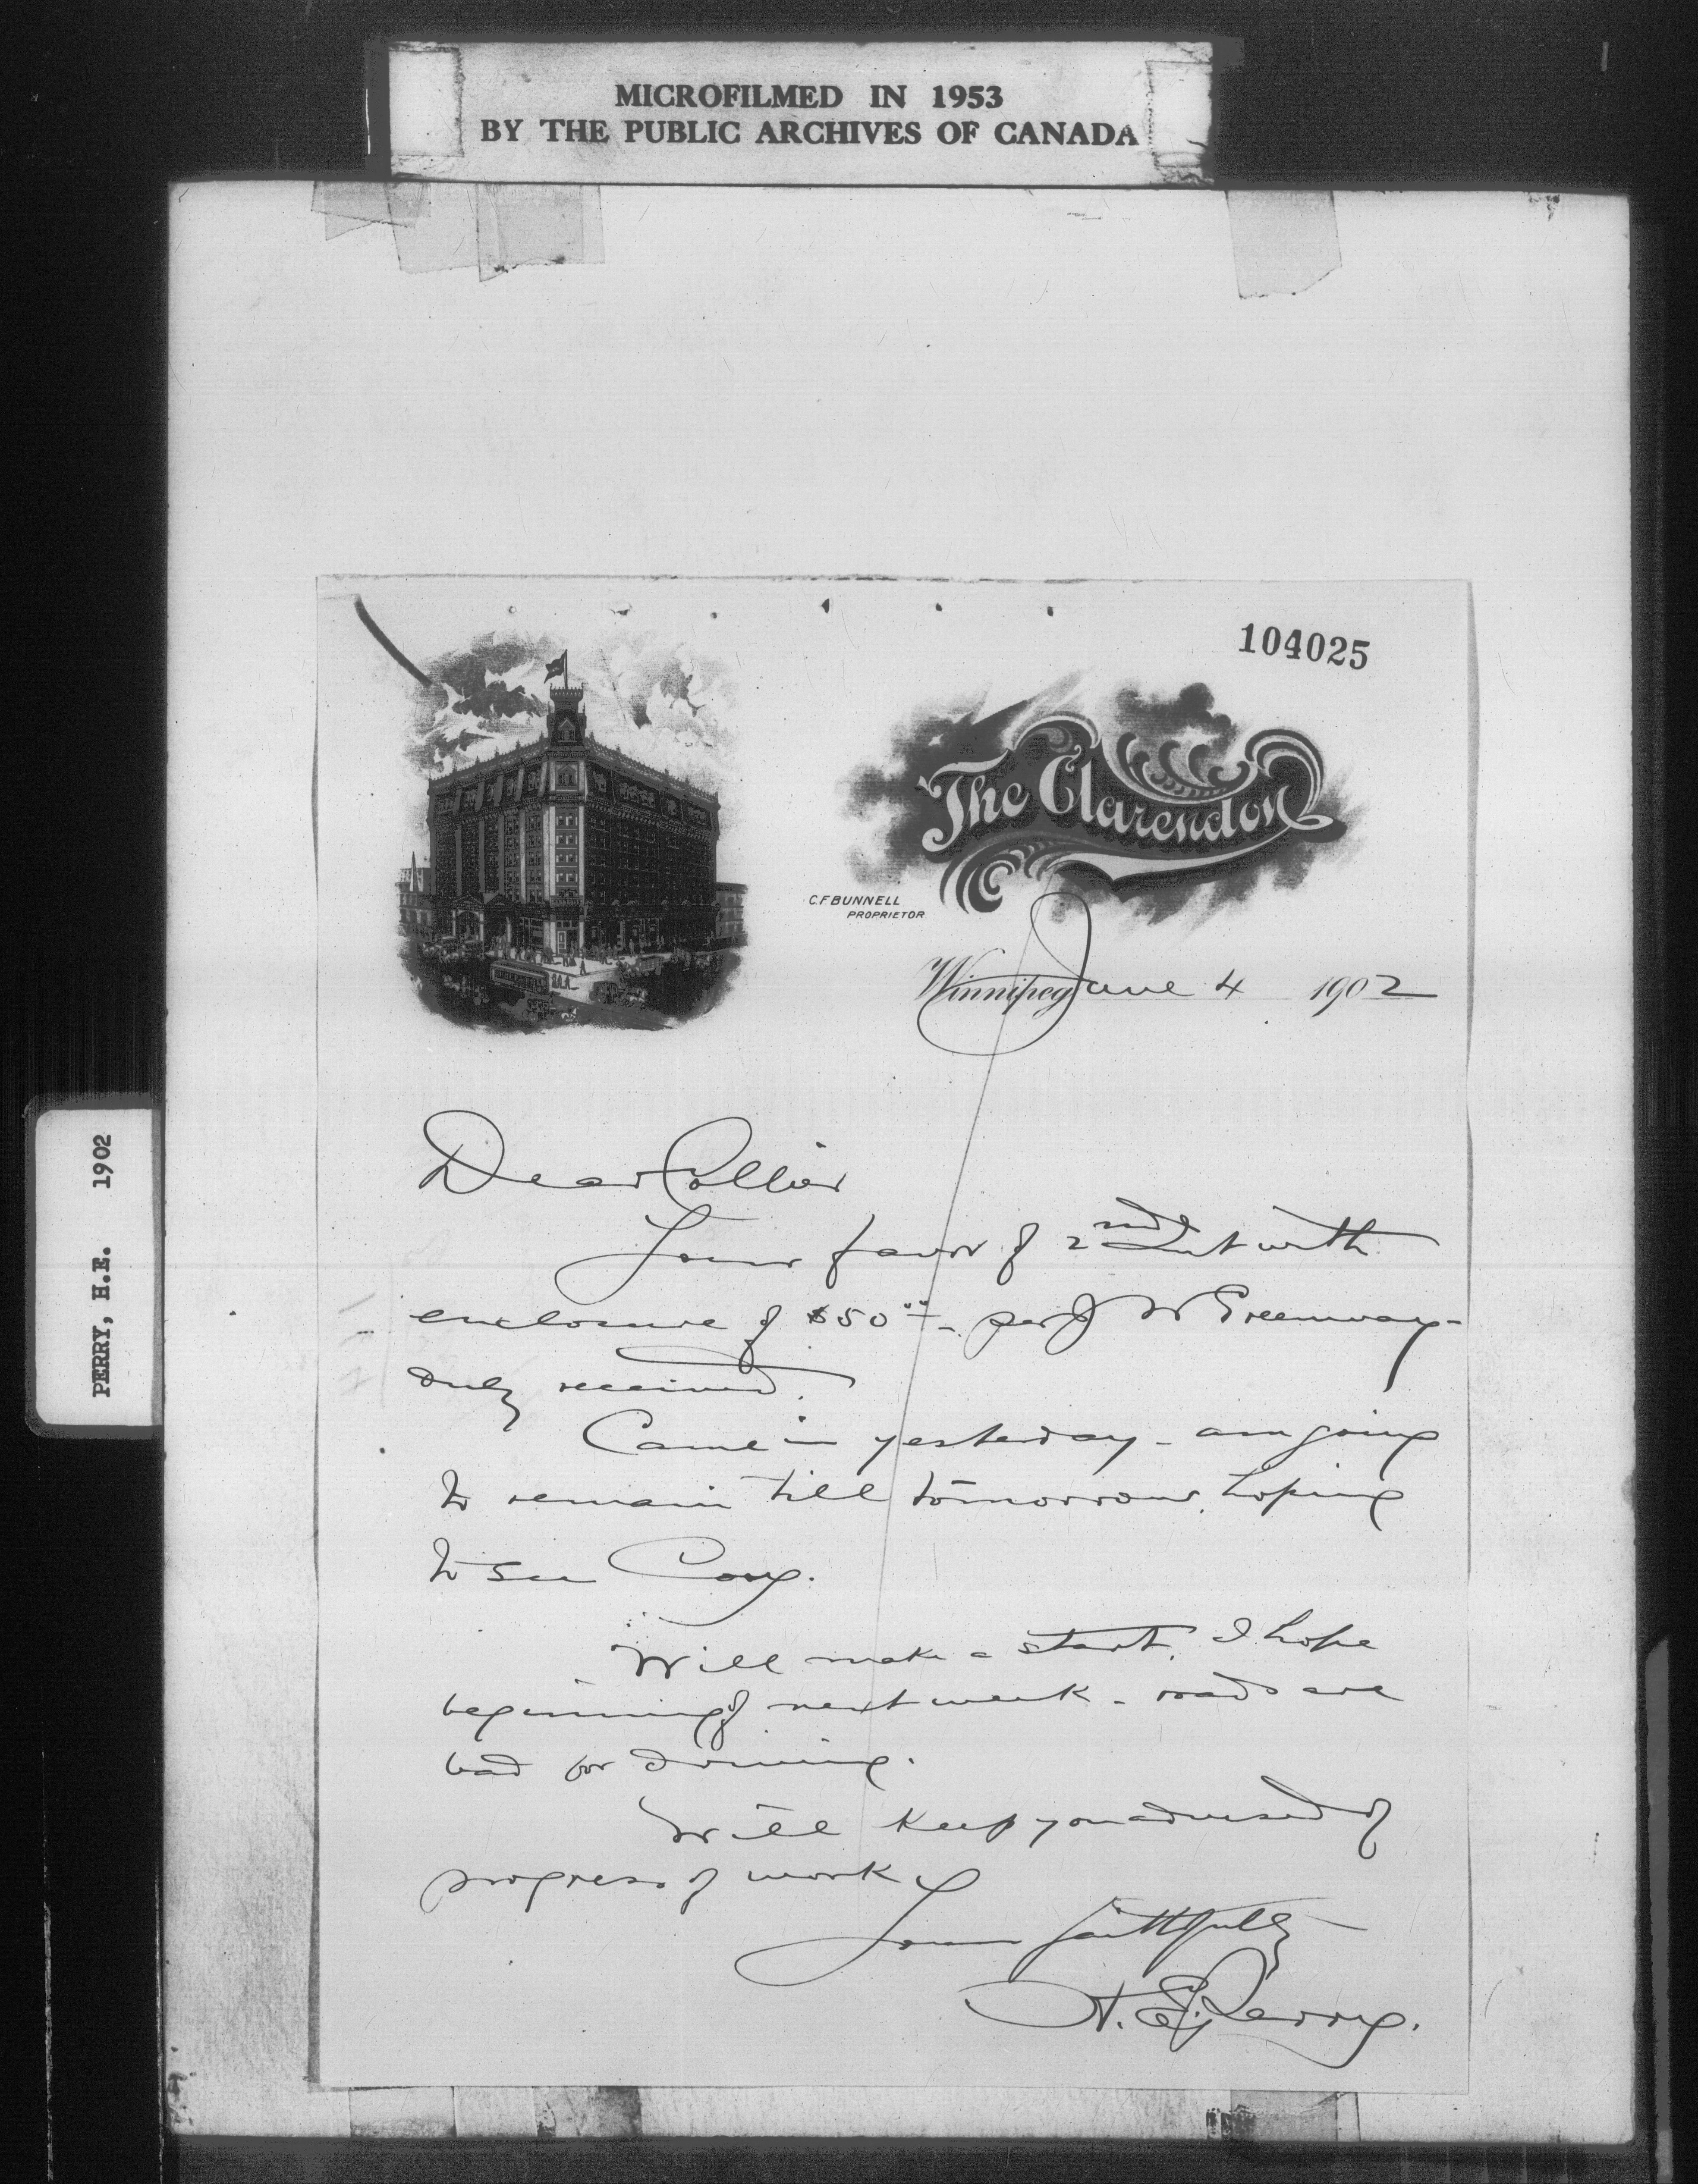 MICROFILMED IN 1953
BY THE PUBLIC ARCHIVES OF CANADA
PERRY, H.E. 1902
104025
The Clarendon
C.F. BUNNELL
PROPRIETOR
Winnipeg June 4 1902
Dear Collier
Your favor of 2nd Inst with
enclosure of $50.00 - per J W Greenway -
duly received.
Came in yesterday - am going
to remain till tomorrow, hoping
to see Cory.
Will make a start, I hope
beginning of next week - roads are
bad for driving.
Will keep you advised of
progress of work
Yours faithfully
H. E. Perry.